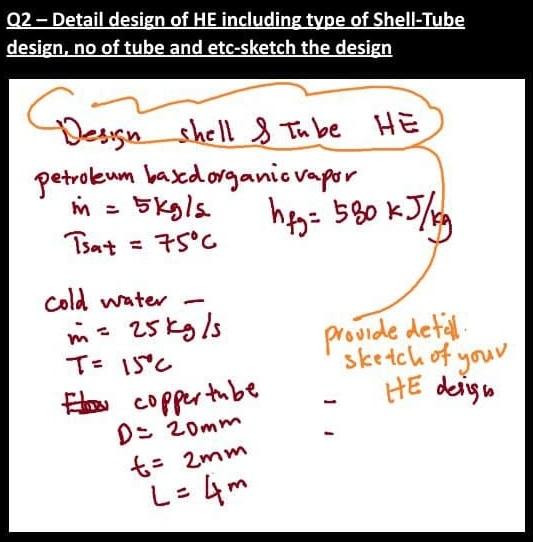 Q2 – Detail design of HE including type of Shell-Tube
design, no of tube and etc-sketch the design
Design shell & Tube HE
petroleum based organic vapor
ṁ = 5kg/s hfg = 580 kJ/kg
Tsat = 75°C
cold water –
ṁ = 25kg/s
T = 15°C
copper tube
D = 20mm
t = 2mm
L = 4m
provide detail
sketch of your
HE design